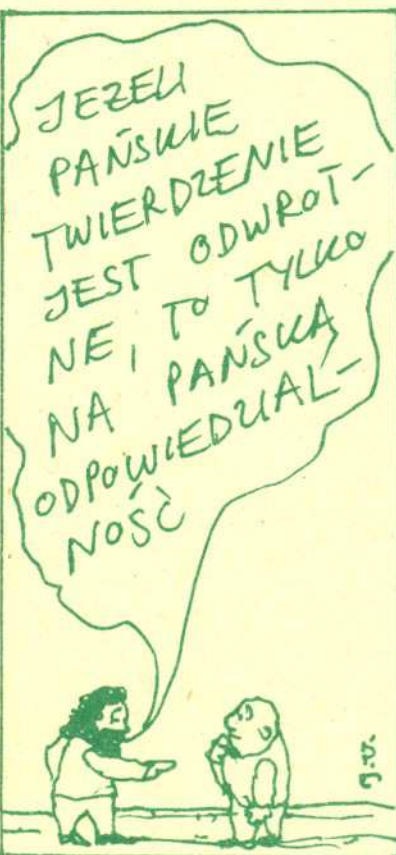 JEZELI
PAŃSKIE
TWIERDZENIE
JEST ODWROT-
NE, TO TYLKO
NA PAŃSKĄ
ODPOWIEDZIAL-
NOŚĆ
J.V.